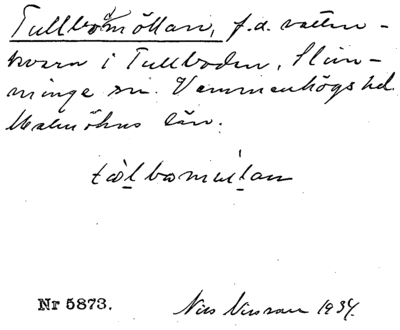 Tullbomöllan, f.d. vatten-
kvarn i Tullboden, Slim-
minge sn. Vemmenhögs hd.
Malmöhus län.
Nr 5873. Nils Nilsson 1934.